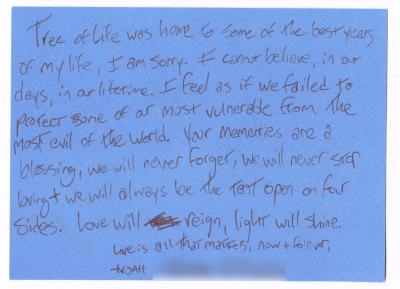 Tree of Life was home to some of the best years
of my life, I am sorry. I cannot believe, in our
days, in our lifetime. I feel as if we failed to
protect some of our most vulnerable from the
most evil of the world. Your memories are a
blessing, we will never forget, we will never stop
loving + we will always be the tent open on four
sides. Love will reign, light will shine.
Love is all that matters, now + forever,
-NOAH